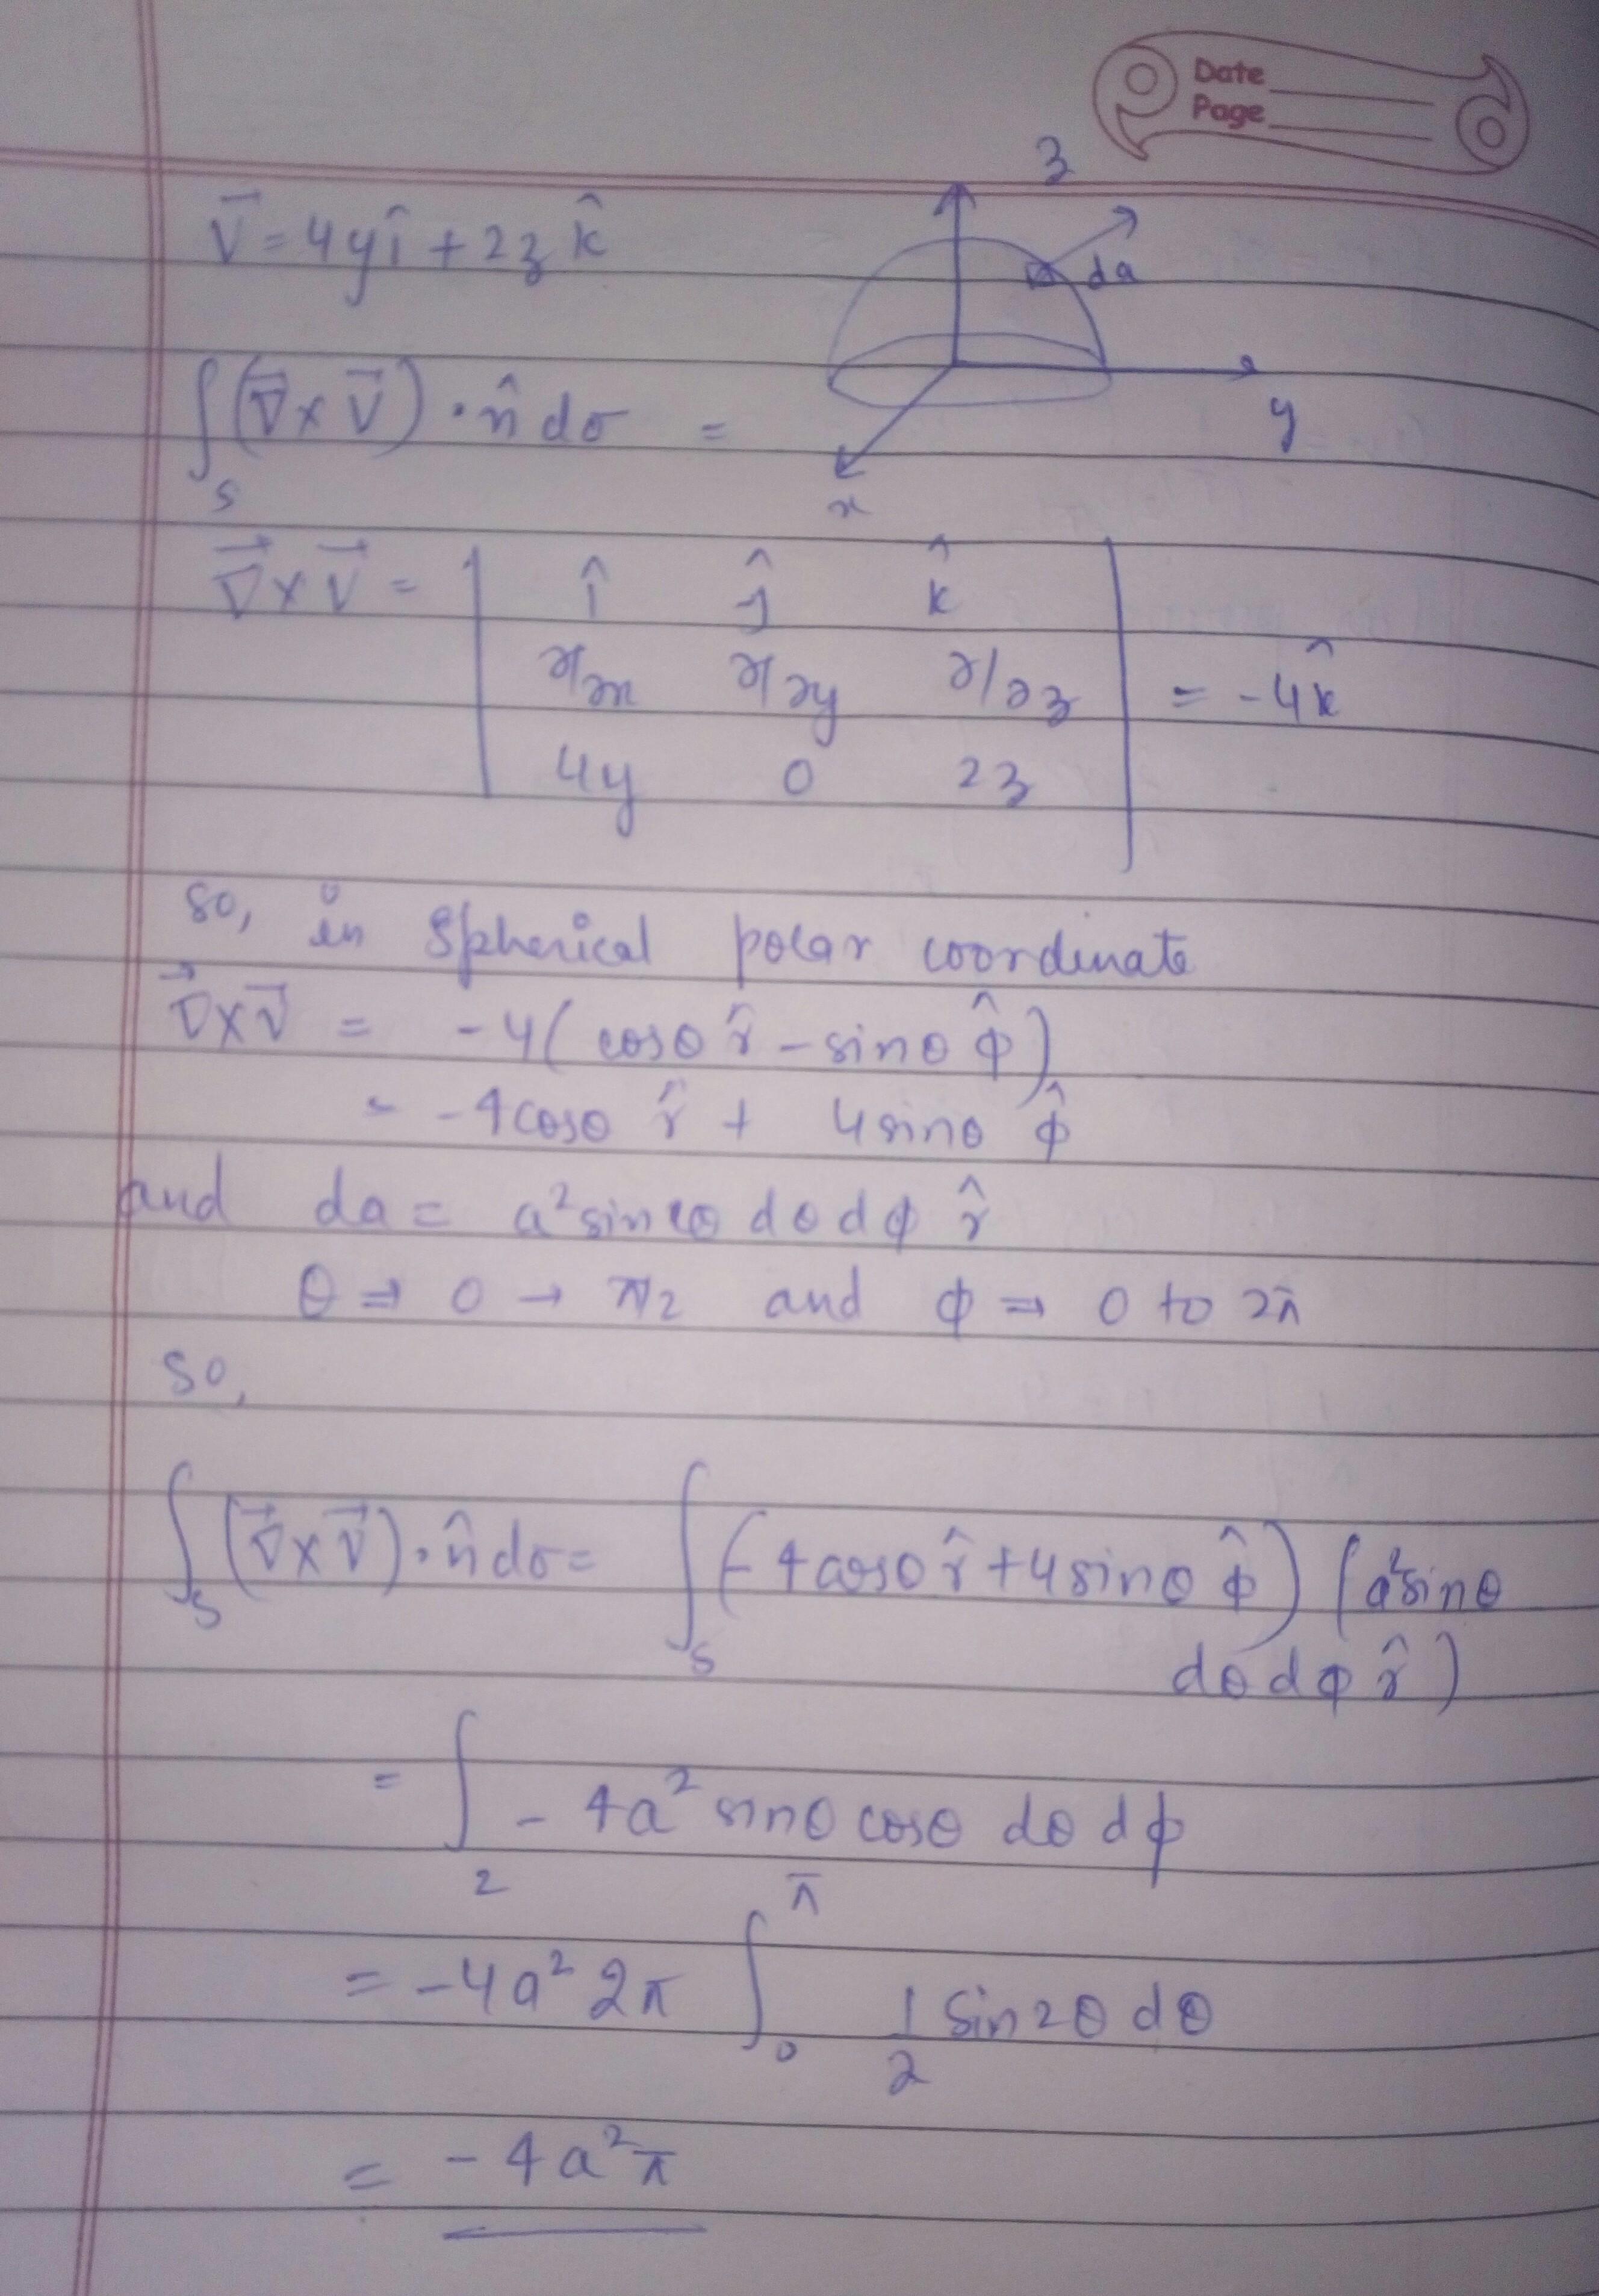 Date
Page
z
V⃗ = 4yî + 2z k̂
da
∫ₛ (∇⃗ × V⃗) · n̂ dσ =
y
x
∇⃗ × V⃗ = | î ĵ k̂ |
| ∂/∂x ∂/∂y ∂/∂z | = -4k̂
| 4y 0 2z |
so, in Spherical polar coordinate
∇⃗ × V⃗ = -4( cosθ r̂ - sinθ ϕ̂ )
= -4cosθ r̂ + 4sinθ ϕ̂
and da = a² sin θ dθ dϕ r̂
θ ⇒ 0 → π/2 and ϕ ⇒ 0 to 2π
so,
∫ₛ (∇⃗ × V⃗) · n̂ dσ = ∫ₛ (-4cosθ r̂ + 4sinθ ϕ̂) (a² sinθ
dθ dϕ r̂ )
= ∫ - 4a² sinθ cosθ dθ dϕ
2 π
= -4a² 2π ∫₀ 1/2 Sin2θ dθ
= -4a²π